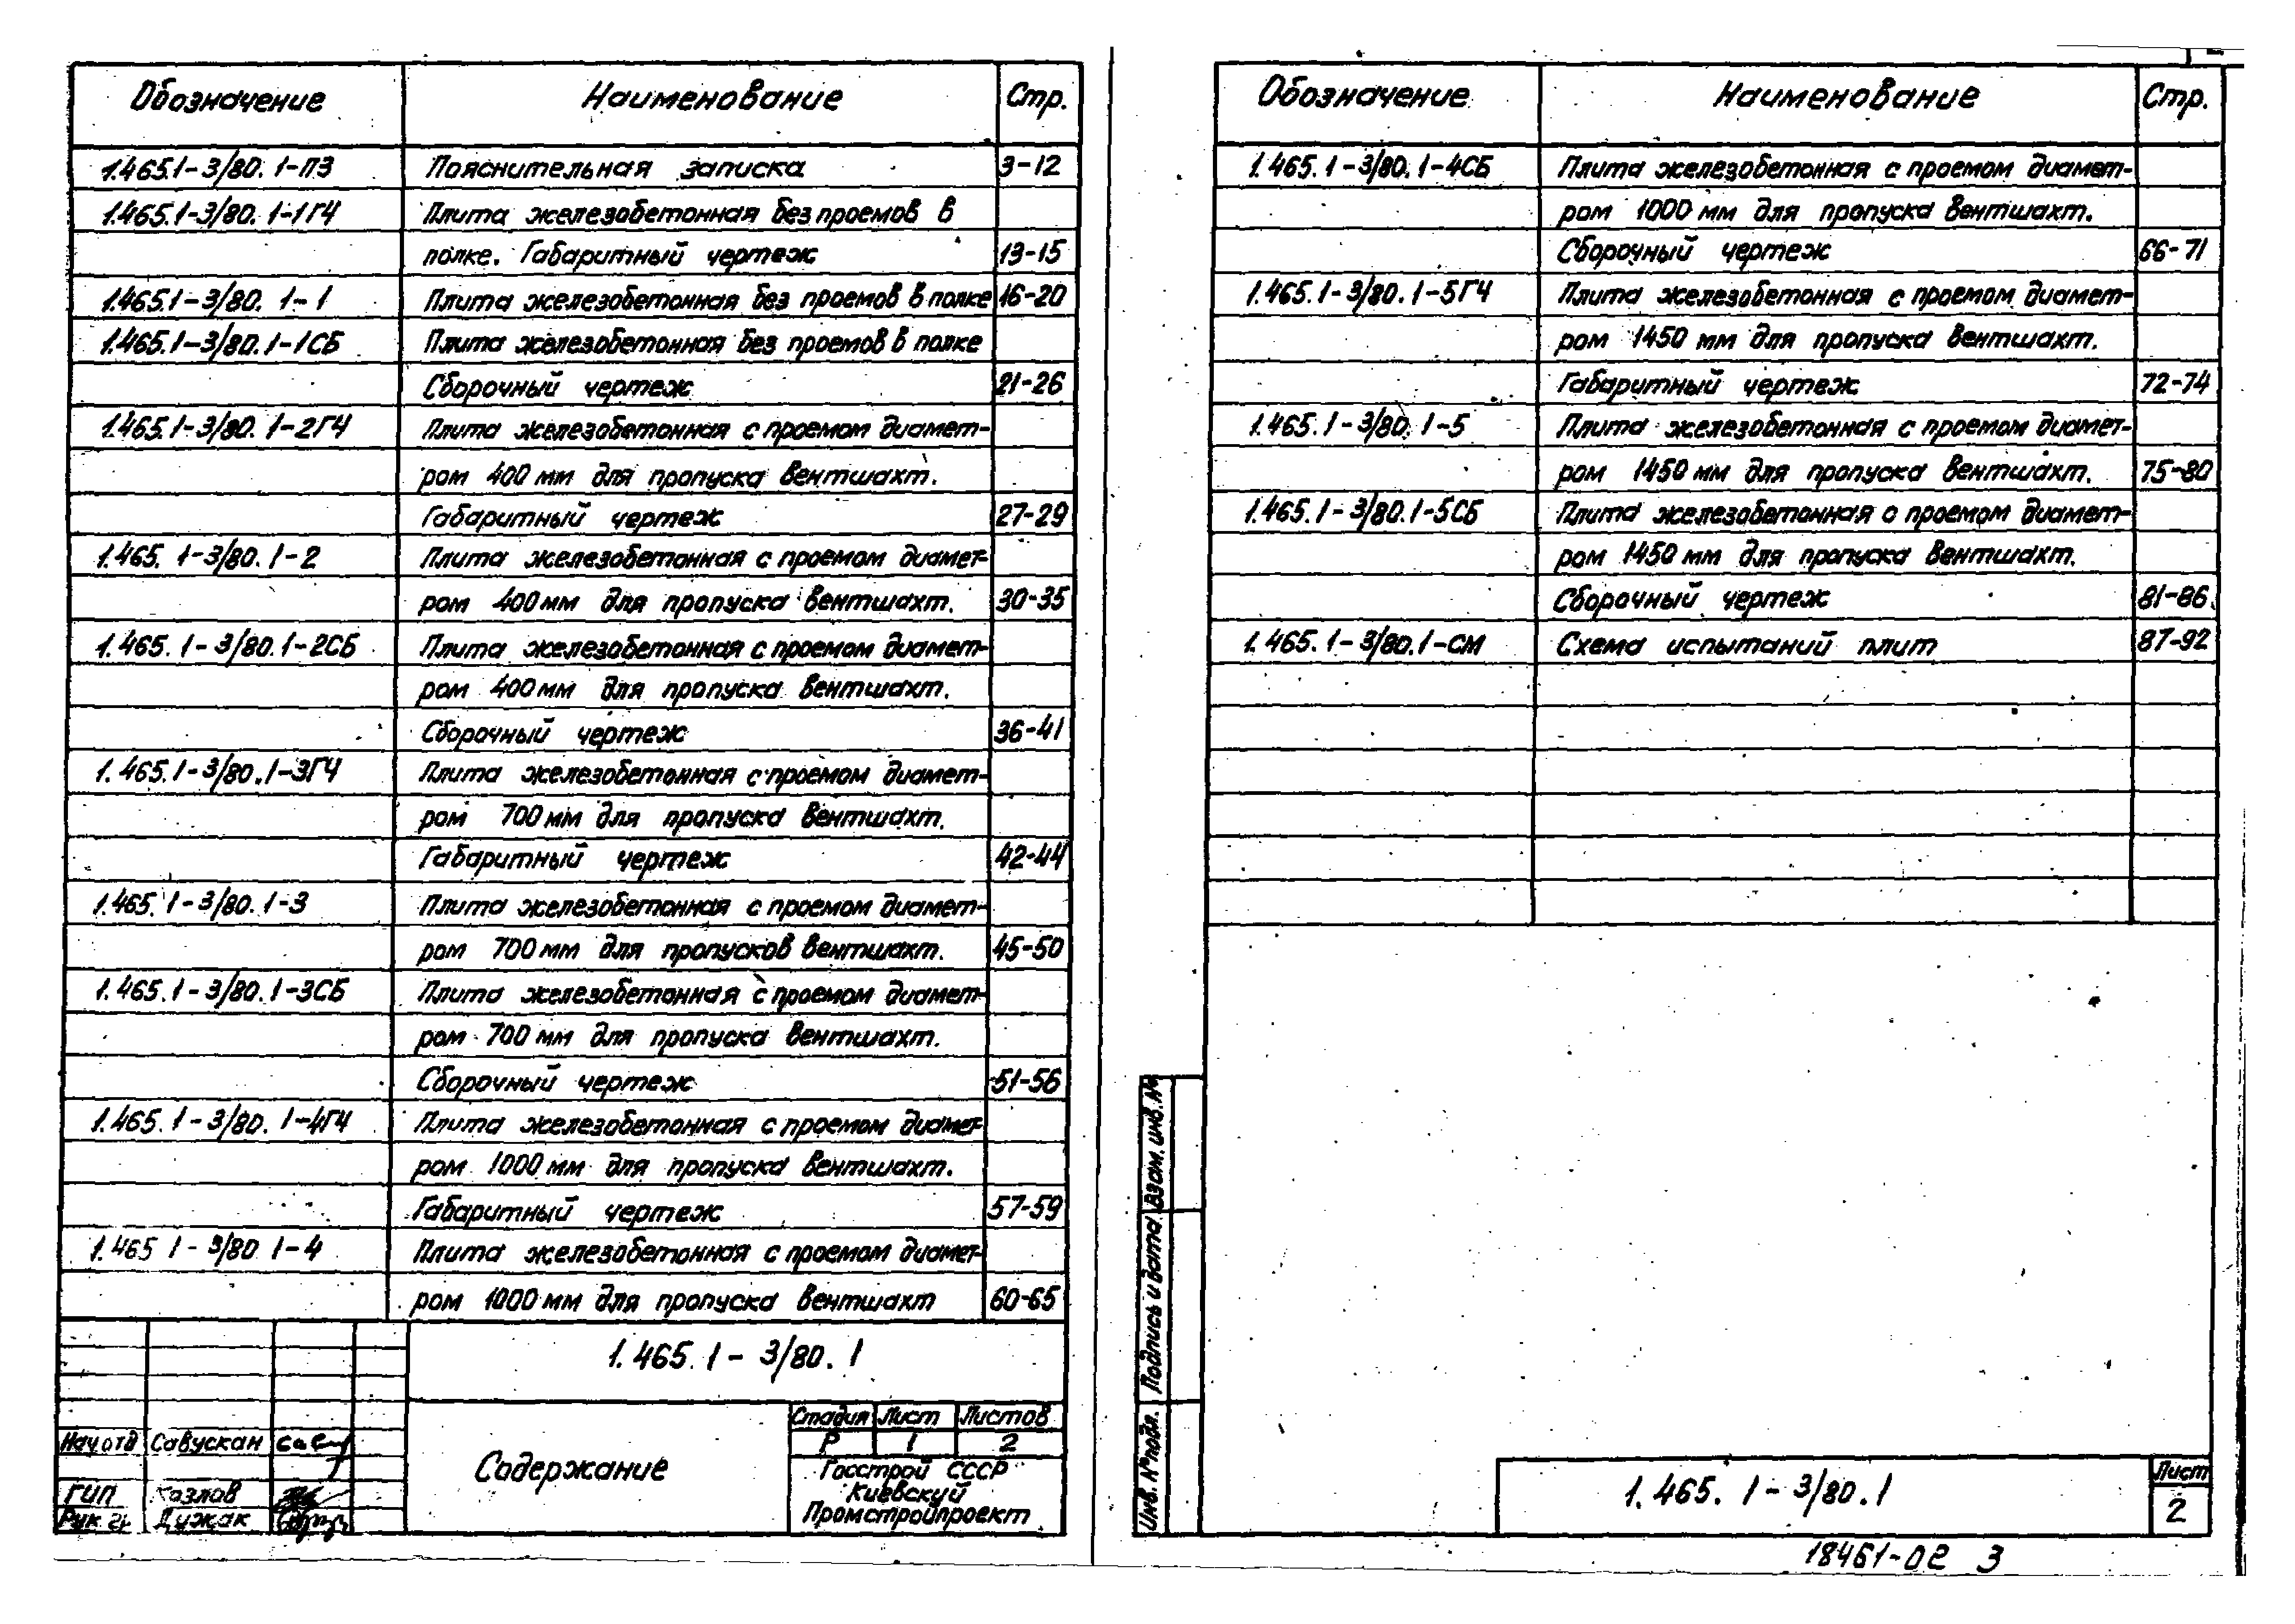 Обозначение Наименование Стр.
1.465.1-3/80. 1-ПЗ Пояснительная записка 3-12
1.465.1-3/80. 1-1ГЧ Плита железобетонная без проемов в
полке. Габаритный чертеж 13-15
1.465.1-3/80. 1-1 Плита железобетонная без проемов в полке 16-20
1.465.1-3/80.1-1СБ Плита железобетонная без проемов в полке
Сборочный чертеж 21-26
1.465.1-3/80. 1-2ГЧ Плита железобетонная с проемом диамет-
ром 400 мм для пропуска вентшахт.
Габаритный чертеж 27-29
1.465. 1-3/80. 1-2 Плита железобетонная с проемом диамет-
ром 400 мм для пропуска вентшахт. 30-35
1.465. 1-3/80.1-2СБ Плита железобетонная с проемом диамет-
ром 400 мм для пропуска вентшахт.
Сборочный чертеж 36-41
1.465.1-3/80.1-3ГЧ Плита железобетонная с проемом диамет-
ром 700 мм для пропуска вентшахт.
Габаритный чертеж 42-44
1.465.1-3/80. 1-3 Плита железобетонная с проемом диамет-
ром 700 мм для пропусков вентшахт. 45-50
1.465.1-3/80.1-3СБ Плита железобетонная с проемом диамет-
ром 700 мм для пропуска вентшахт.
Сборочный чертеж 51-56
1.465.1-3/80. 1-4ГЧ Плита железобетонная с проемом диамет-
ром 1000 мм для пропуска вентшахт.
Габаритный чертеж 57-59
1.465 1-3/80 1-4 Плита железобетонная с проемом диамет-
ром 1000 мм для пропуска вентшахт 60-65
1.465.1-3/80.1
Содержание
Стадия Лист Листов
Р 1 2
Госстрой СССР
Киевский
Промстройпроект
Нач отд Савускан
ГИП Козлов
Рук гр Дижак
Обозначение Наименование Стр.
1.465.1-3/80.1-4СБ Плита железобетонная с проемом диамет-
ром 1000 мм для пропуска вентшахт.
Сборочный чертеж 66-71
1.465.1-3/80.1-5ГЧ Плита железобетонная с проемом диамет-
ром 1450 мм для пропуска вентшахт.
Габаритный чертеж 72-74
1.465.1-3/80. 1-5 Плита железобетонная с проемом диамет-
ром 1450 мм для пропуска вентшахт. 75-80
1.465.1-3/80.1-5СБ Плита железобетонная с проемом диамет-
ром 1450 мм для пропуска вентшахт.
Сборочный чертеж 81-86
1.465.1-3/80.1-СМ Схема испытаний плит 87-92
Взам. инв. №
Подпись и дата
Инв. № подл.
1.465.1-3/80.1
Лист
2
18461-02 3